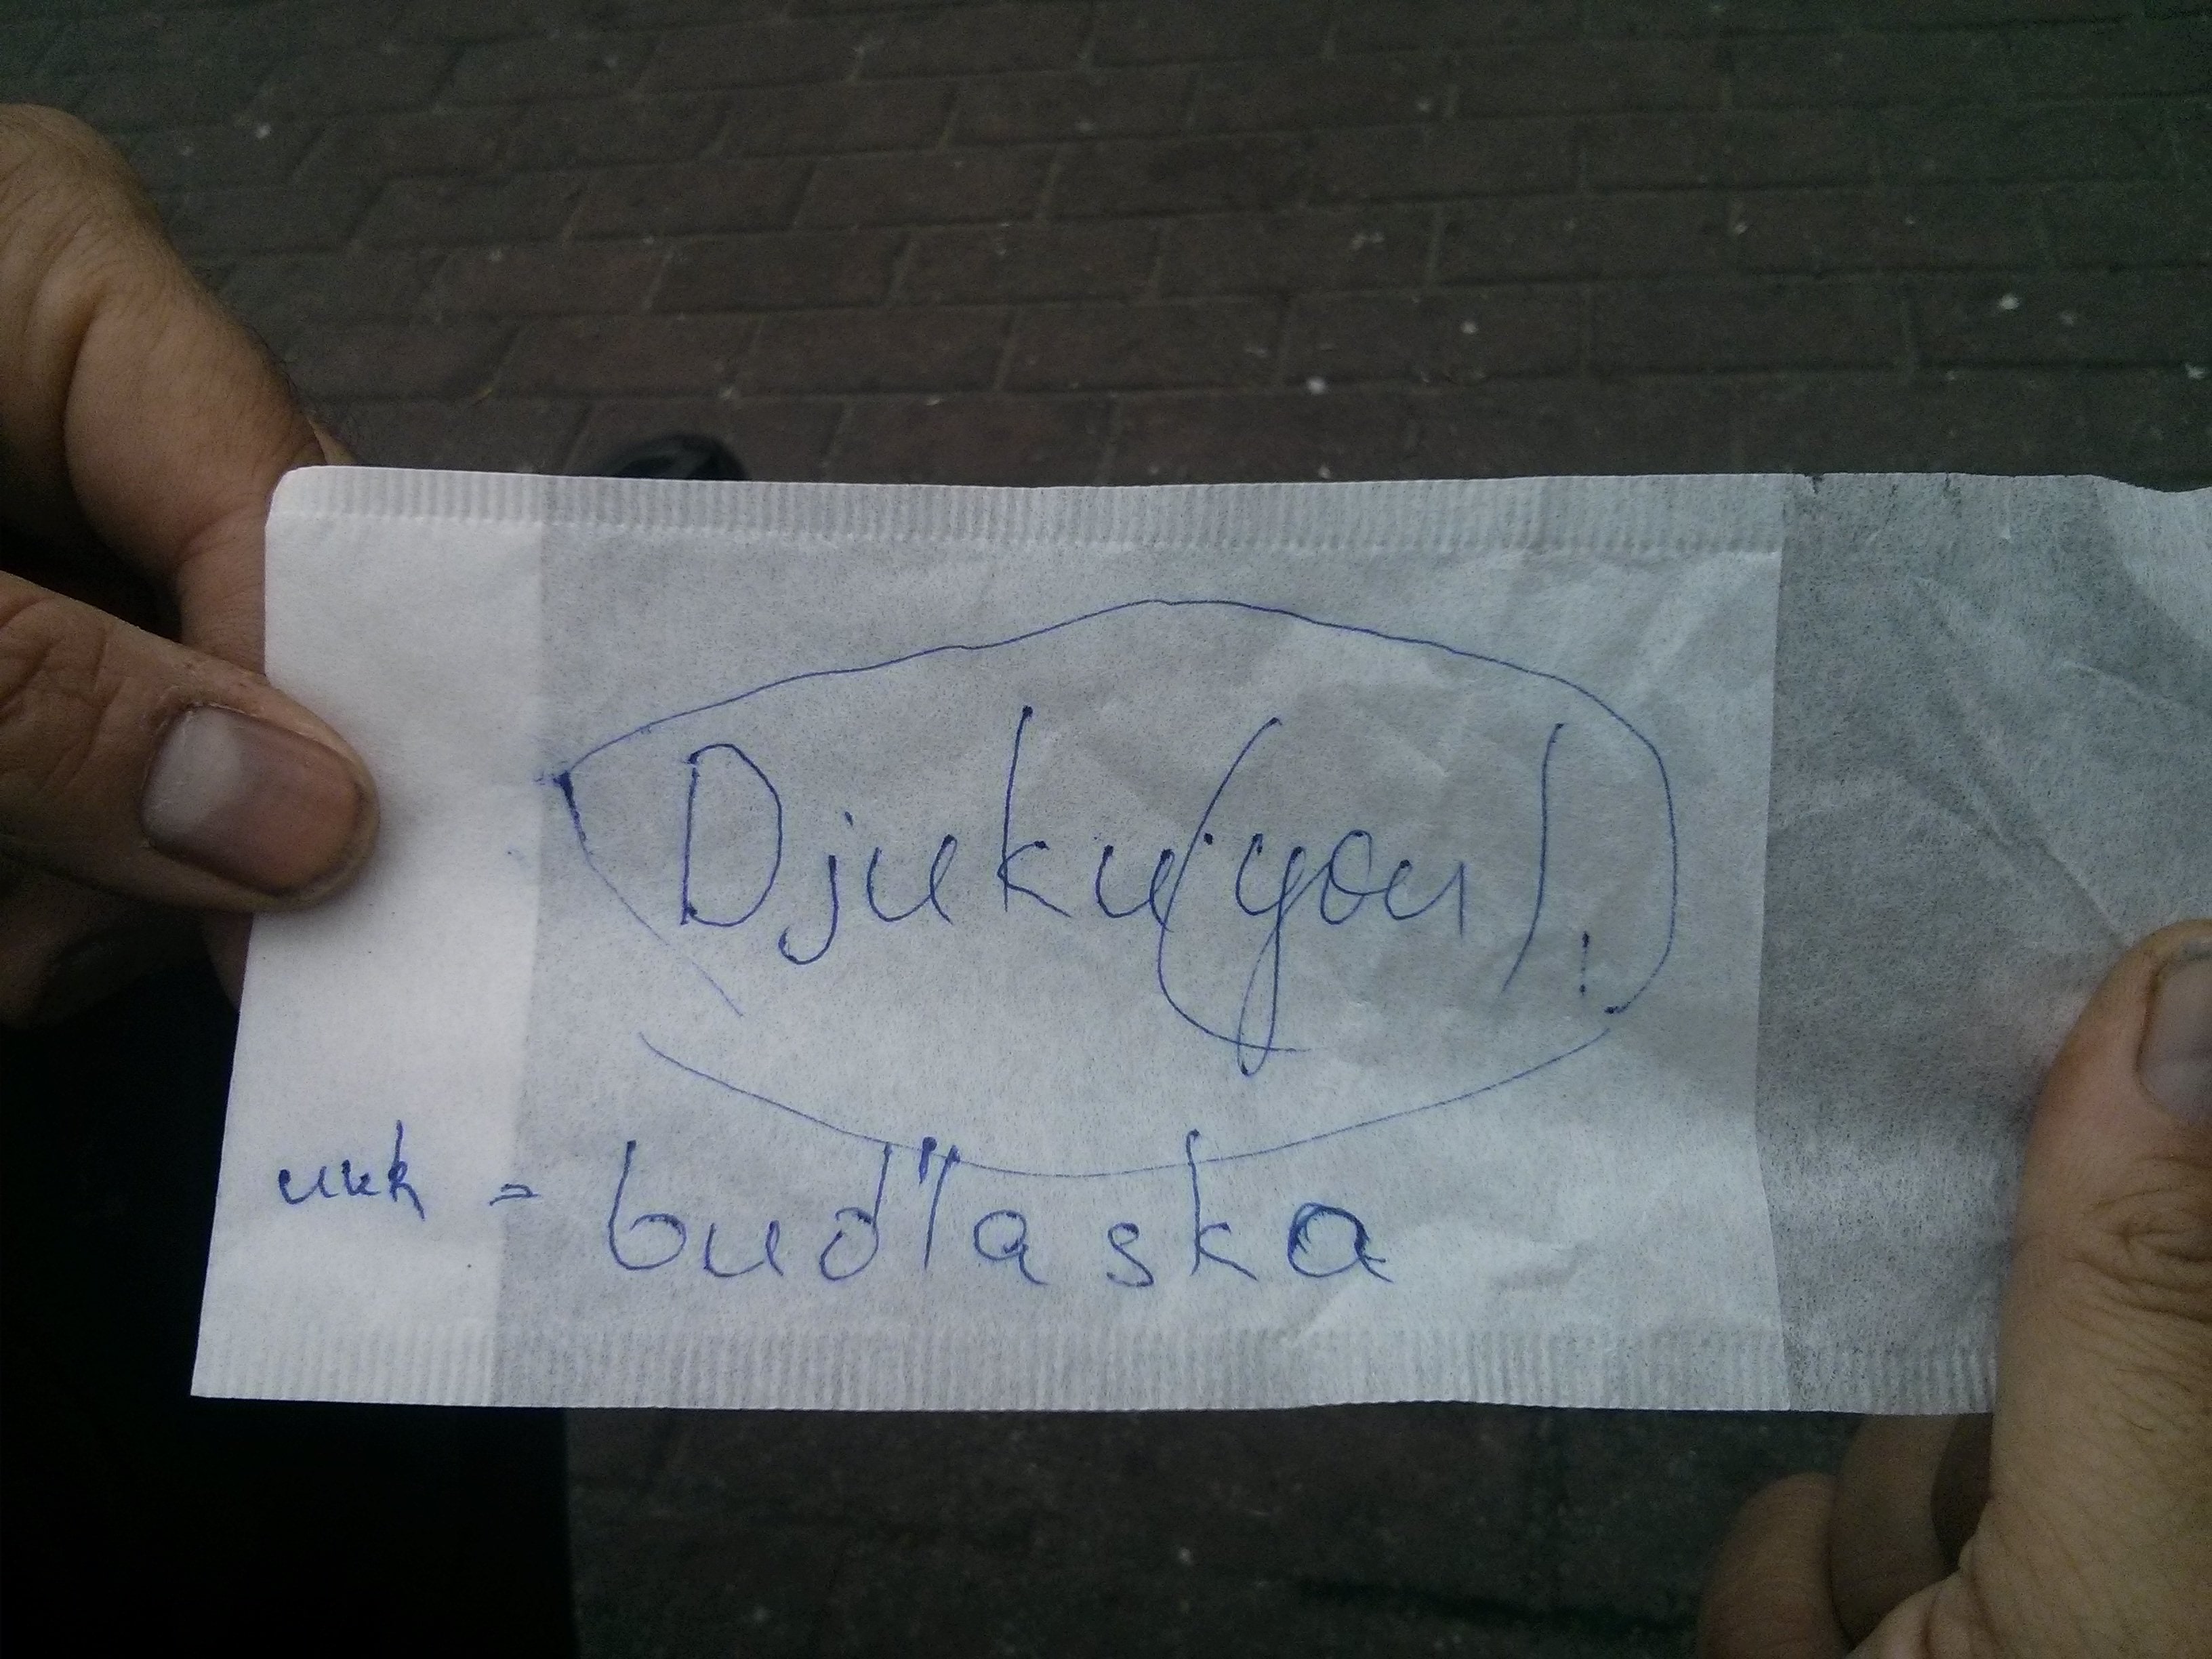 Djuku(you)!
ukk = bud''laska